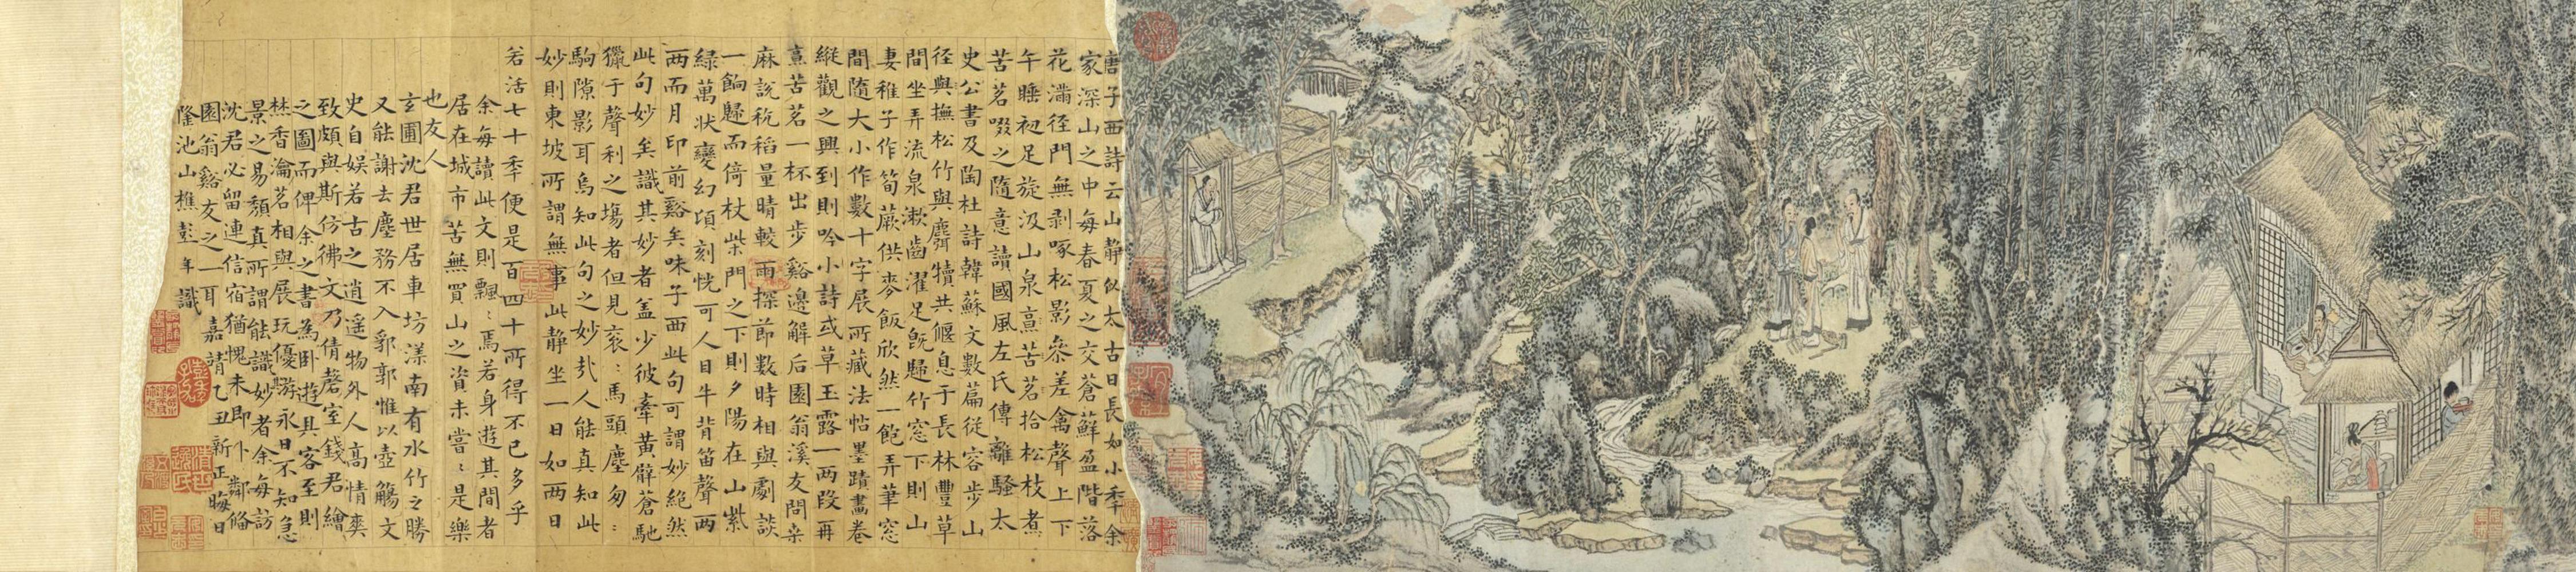 唐子西詩云山靜似太古日長如小年余
家深山之中每春夏之交蒼蘚盈階落
花滿徑門無剥啄松影參差禽聲上下
午睡初足旋汲山泉熹苦茗拾松枝煮
苦茗啜之隨意讀國風左氏傳離騷太
史公書及陶杜詩韓蘇文數篇從容步山
径與撫松竹與麛犢共偃息于長林豐草
間坐弄流泉漱齒濯足旣歸竹窓下則山
妻稚子作筍蕨供麥飯欣然一飽弄筆窓
間隨大小作數十字展所藏法帖墨蹟畫卷
縱觀之興到則吟小詩或草玉露一兩段再
熹苦茗一杯出步谿邊解后園翁溪友問桑
麻說秔稻量晴較雨探節數時相與劇談
一餉歸而倚杖柴門之下則夕陽在山紫
綠萬狀變幻頃刻恍可人目牛背笛聲兩
兩而月印前谿矣味子西此句可謂妙絕然
此句妙矣識其妙者盖少彼牽黄臂蒼馳
獵于聲利之場者但見衮〻馬頭塵匆〻
駒隙影耳烏知此句之妙㢤人能真知此
妙則東坡所謂無事此靜坐一日如兩日
若活七十年便是百四十所得不已多乎
余每讀此文則飄〻焉若身遊其間者
居在城市苦無買山之資未嘗〻是樂
也友人
玄圃沈君世居車坊漾南有水竹之勝
又能謝去塵務不入郭郭惟以壺觴文
史自娛若古之逍遥物外人高情爽
致頗與斯仿彿文乃倩磬室錢君繪
之圖而俾余之書為卧遊具客至則
焚香瀹茗相與展玩優游永日不知急
景之易頹真所謂能識妙者余每訪
沈君必留連信宿猶愧未即卜鄰俻
園翁谿友之一耳嘉靖乙丑新正晦日
隆池山樵彭年識